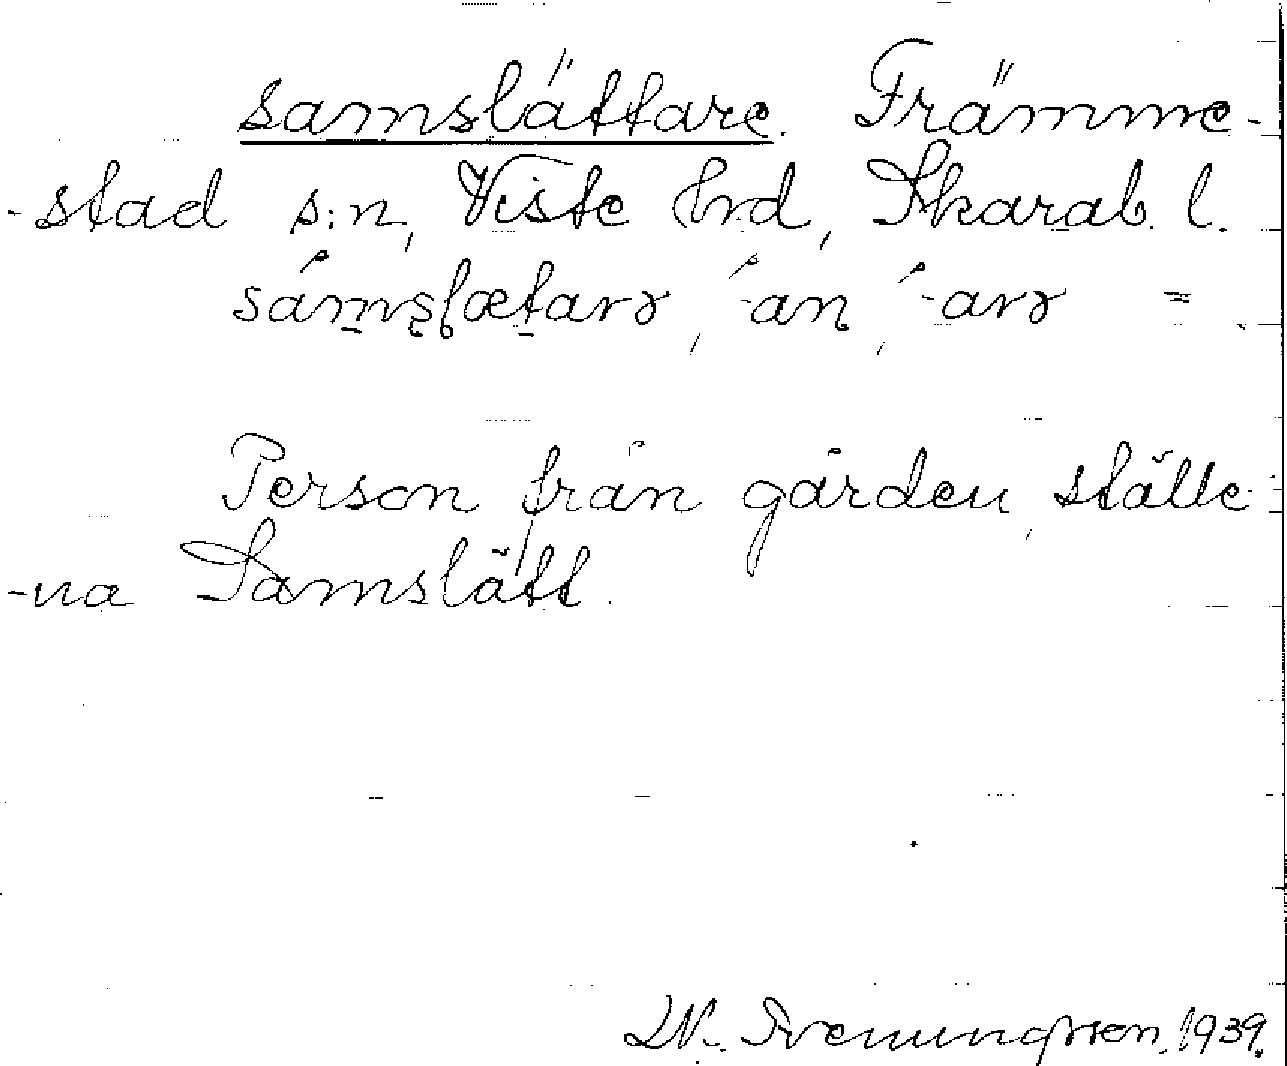 samslättare. Främme-
-stad s:n, Viste hrd, Skarab. l.
sámslætarə, -án, -arə =
Person från gården, ställe-
-na Samslätt.
W. Svenungsson, 1939.